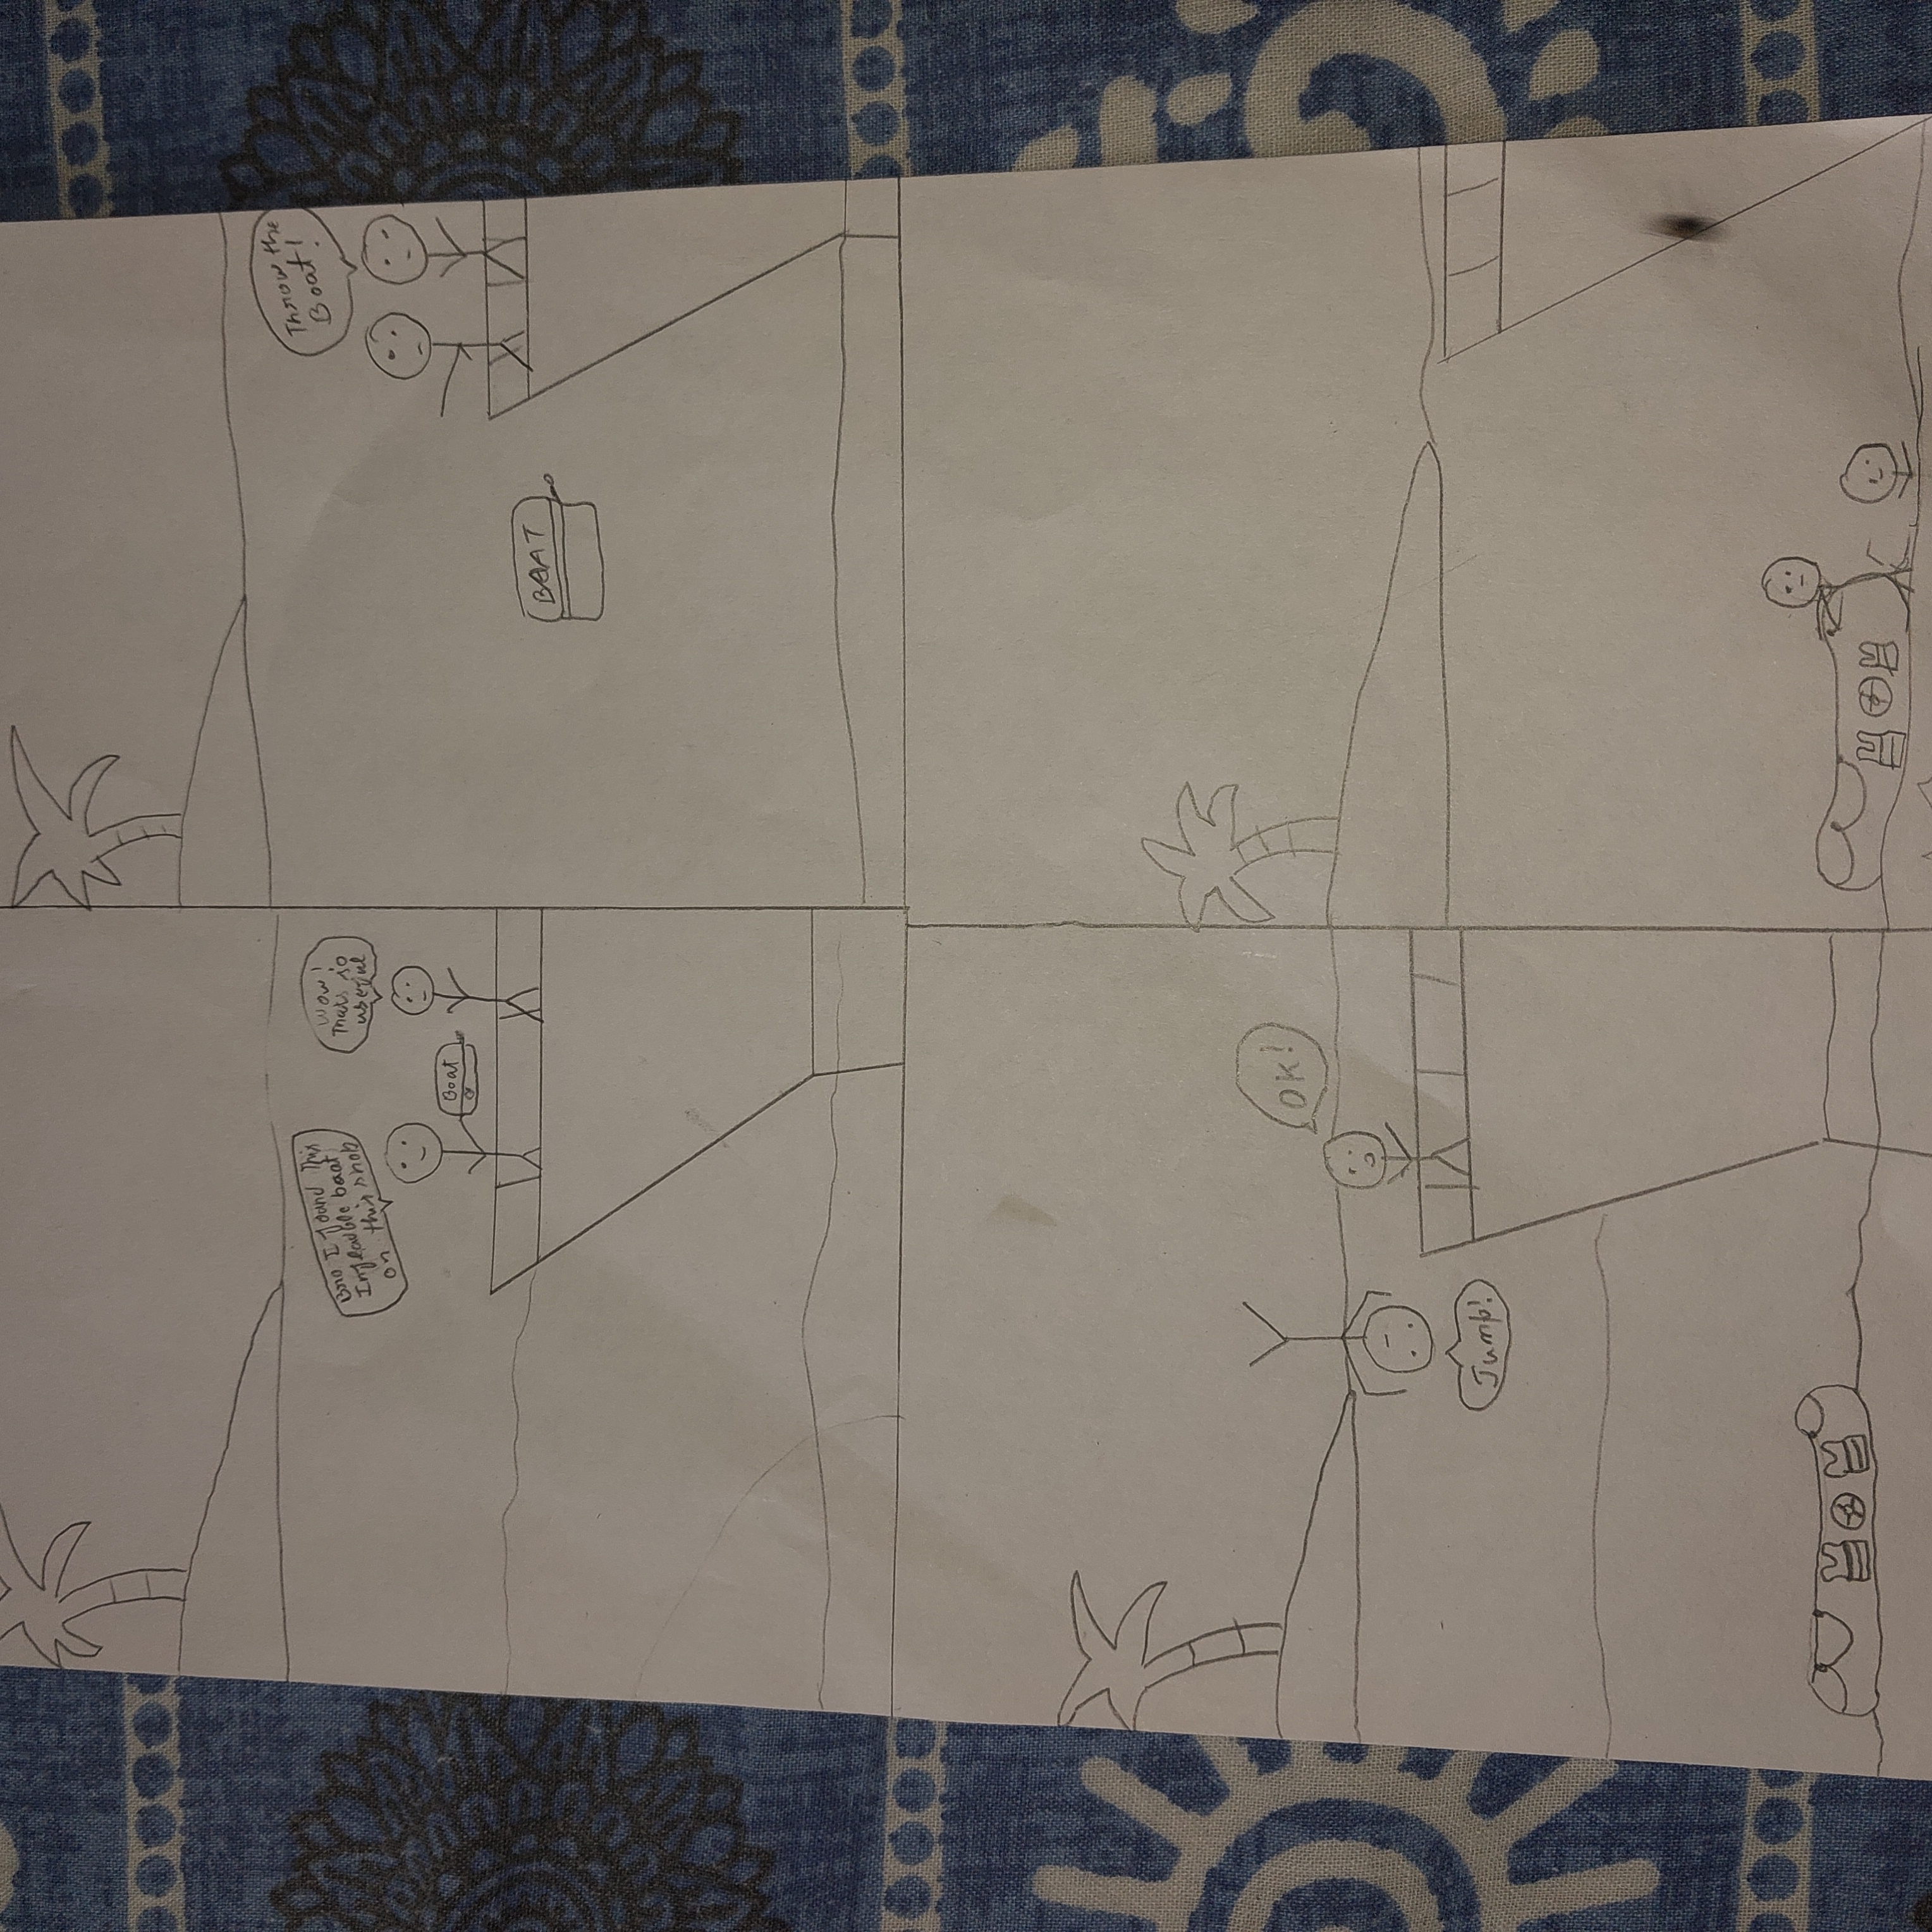 Bro I found This
Infeatble boat
on this shob
Wow!
Thats so
useful
Boat
Throw the
Boat!
BOAT
OK!
Jump!